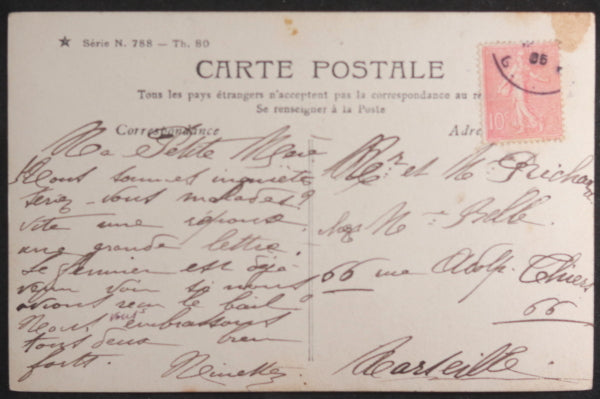 ★ Série N. 788 — Th. 80
CARTE POSTALE
Tous les pays étrangers n'acceptent pas la correspondance au
Se renseigner à la Poste
Correspondance
Ma Petite Mère
Nous sommes inquiets
seriez-vous malades?
vite une réponse
une grande lettre.
Le fermier est déjà
venu voir si nous
avions reçu le bail
Nous vous embrassons
tous deux bien
forts.
06
10c
Mr et M
Mme Belle
66 rue Adolp. Thiers
66
Marseille.